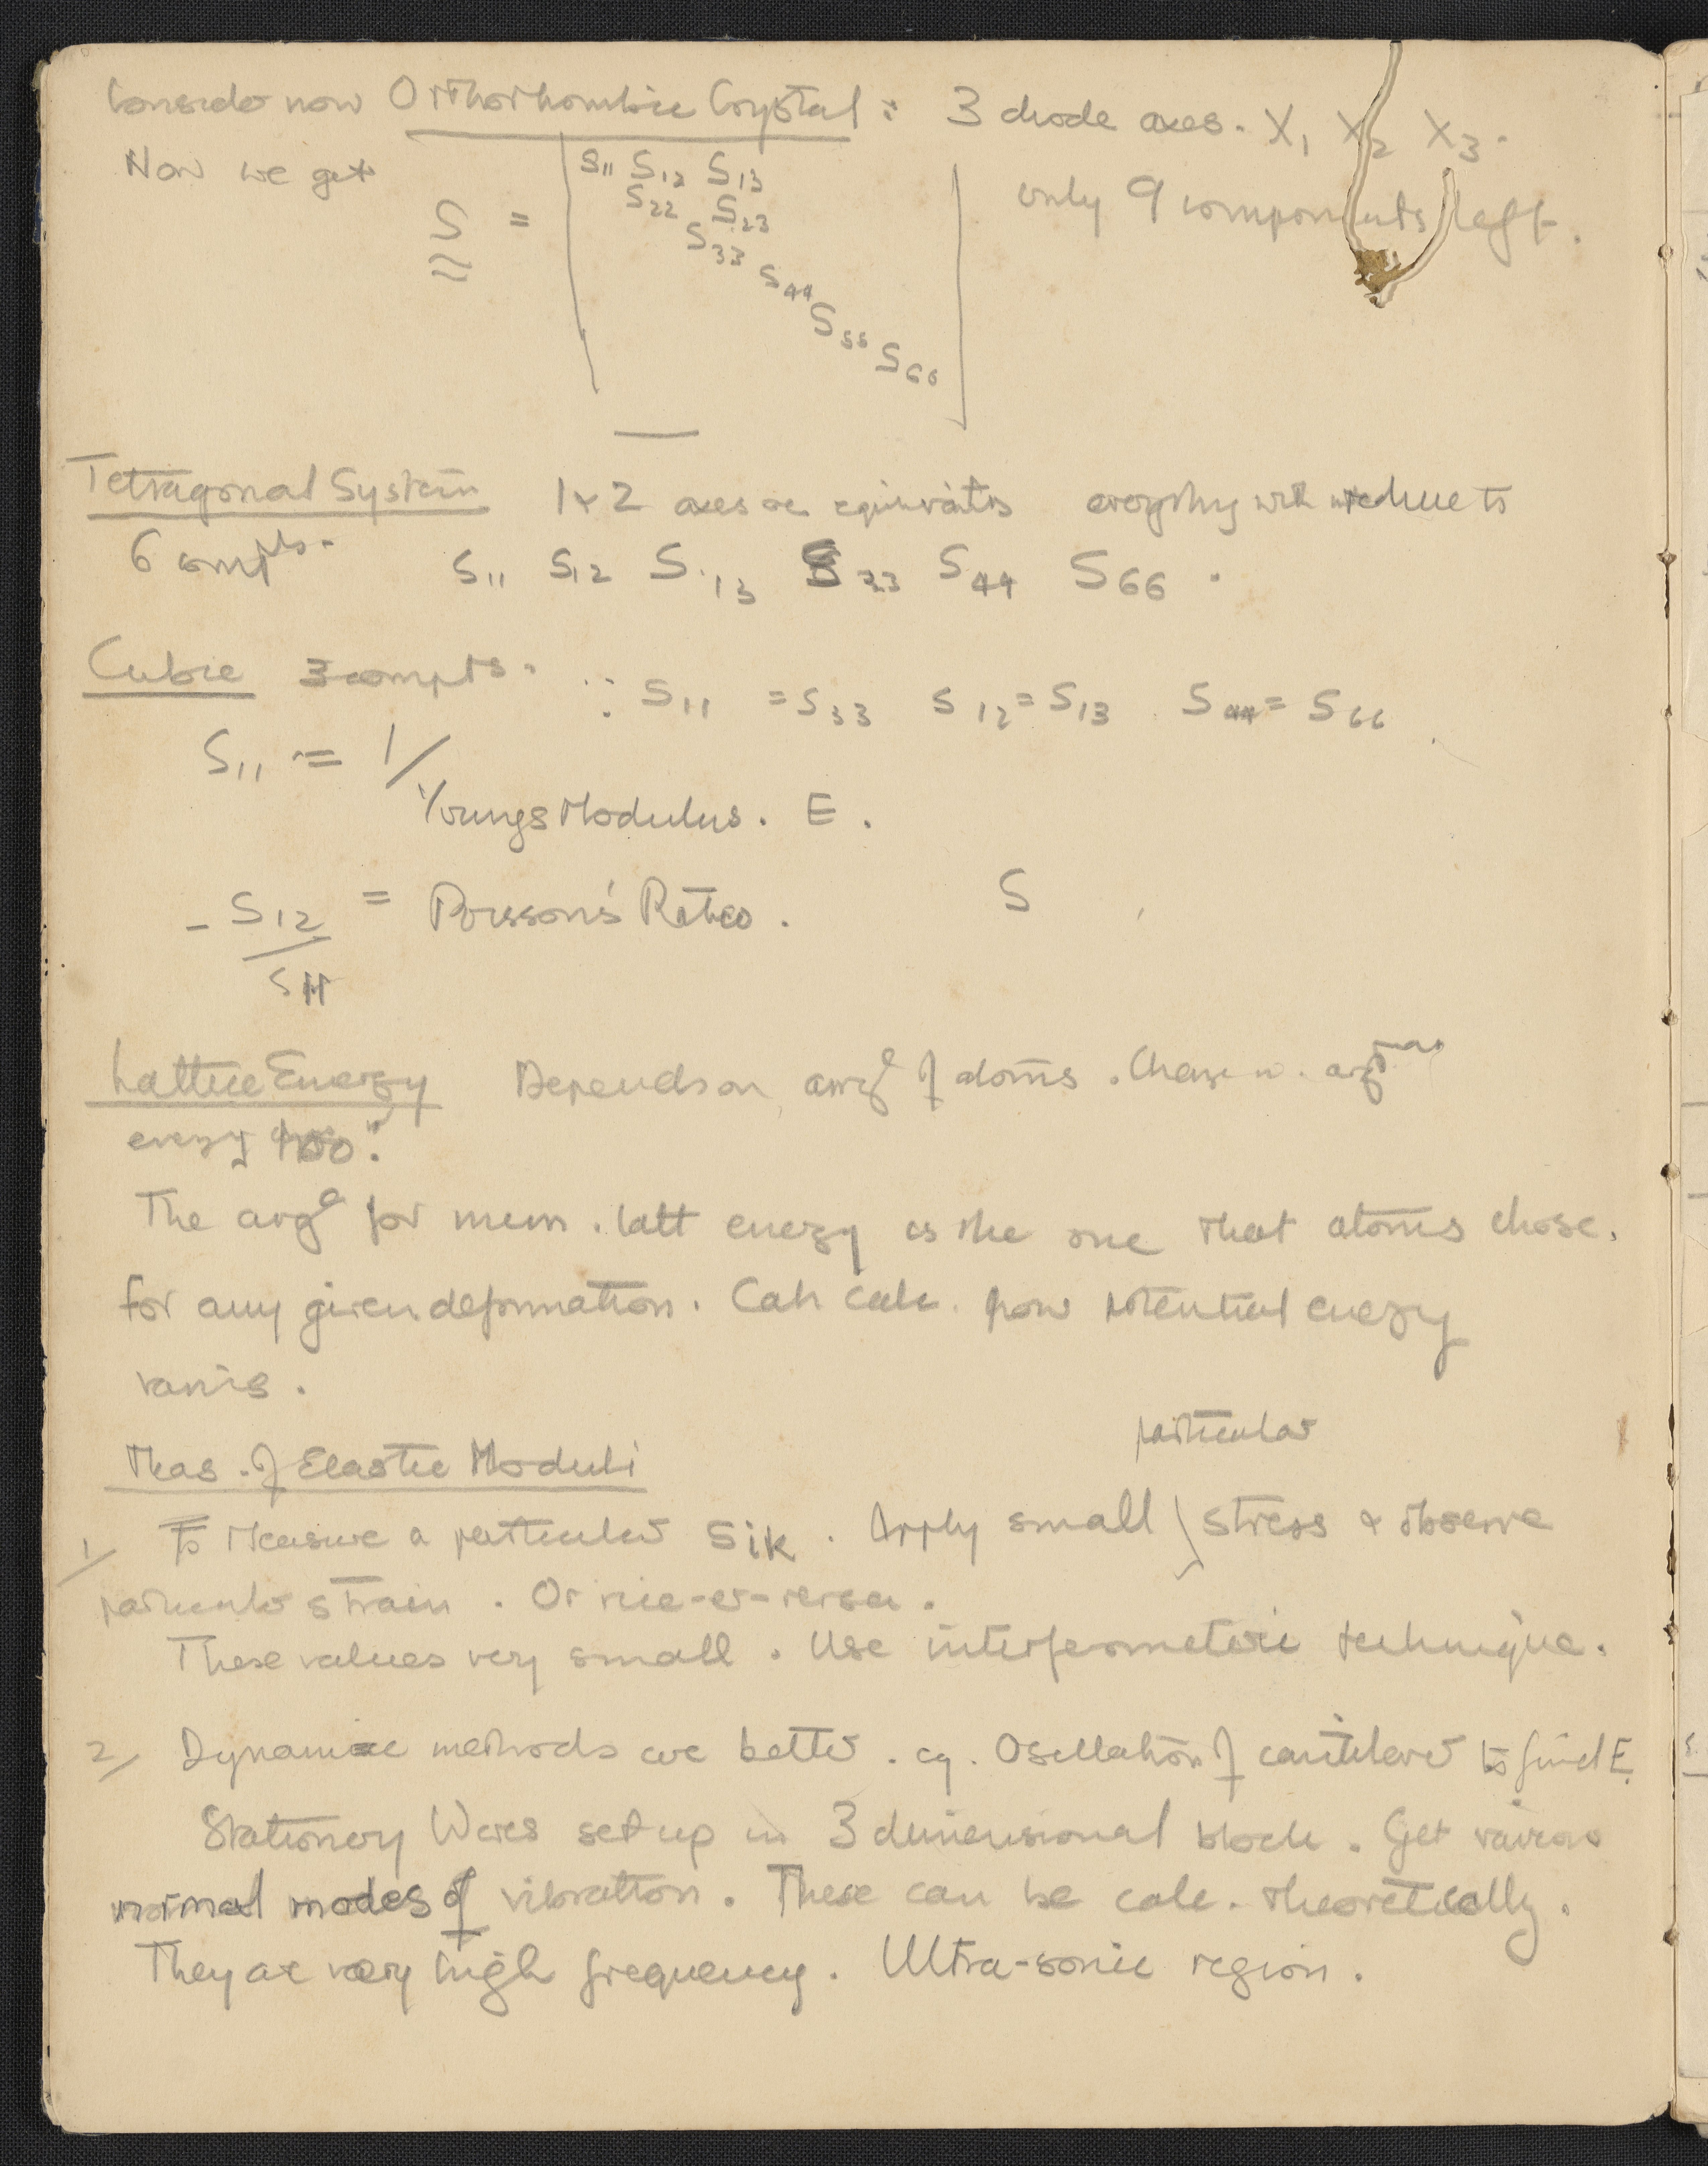 Consider now Orthorhombic Crystal : 3 diode axes. X1 X2 X3.
Now we get
S = | S11 S12 S13
S22 S23
S33
S44
S55
S66 |
only 9 components left.
Tetragonal System 1 & 2 axes are everything will reduce to
6 compts. S11 S12 S13 S33 S44 S66 .
Cubic 3 compts. ∵ S11 = S33 S12 = S13 S44 = S66 .
S11 = 1/
Youngs Modulus . E .
- S12 = Poisson's Ratio .
S11
S
Lattice Energy Depends on arrg^e of atoms . Change in
energy too .
The arrg^e for mum . latt energy is the one that atoms chose.
For any given deformation . Can calc. how potential energy
varies .
Meas . of Elastic Moduli
particular
1/ To Measure a particular Sik . Apply small stress & observe
particular strain . Or vice-er-versa .
These values very small . Use interferometric technique .
2/ Dynamic methods are better . eg . Oscillation of cantilever to find E.
Stationery Waves set up in 3 dimensional block . Get various
normal modes of vibration . These can be calc. theoretically .
They are very high frequency . Ultra-sonic region .